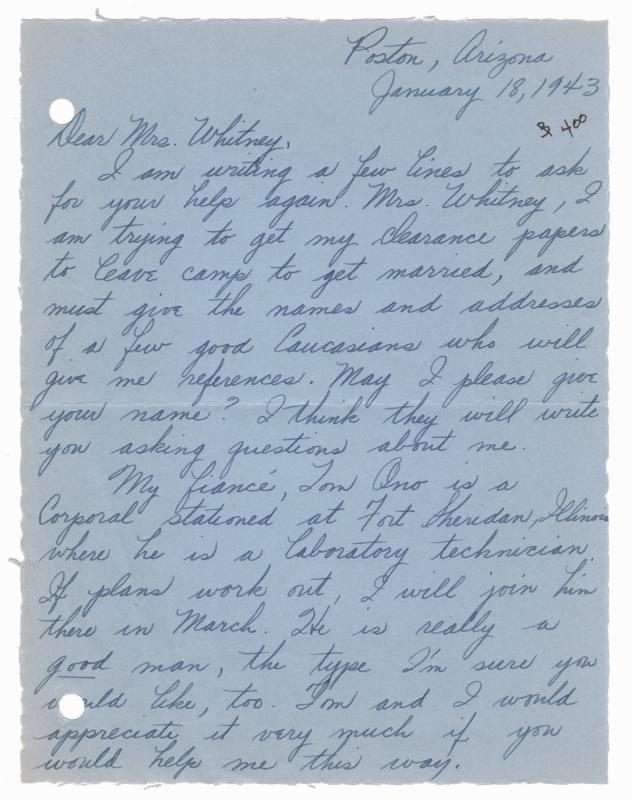 Poston, Arizona
January 18, 1943
$ 400
Dear Mrs. Whitney,
I am writing a few lines to ask
for your help again. Mrs. Whitney, I
am trying to get my clearance papers
to leave camp to get married, and
must give the names and addresses
of a few good Caucasians who will
give me references. May I please give
your name? I think they will write
you asking questions about me.
My fiancé, Tom Ono is a
Corporal stationed at Fort Sheridan, Illinois
where he is a laboratory technician.
If plans work out, I will join him
there in March. He is really a
good man, the type I'm sure you
would like, too. Tom and I would
appreciate it very much if you
would help me this way.